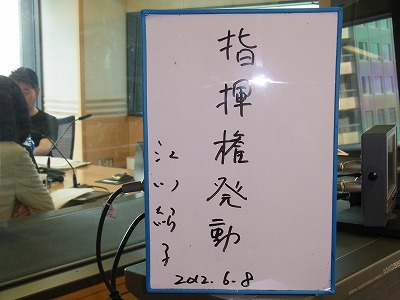 指揮権発動
江川紹子
2012.6.8